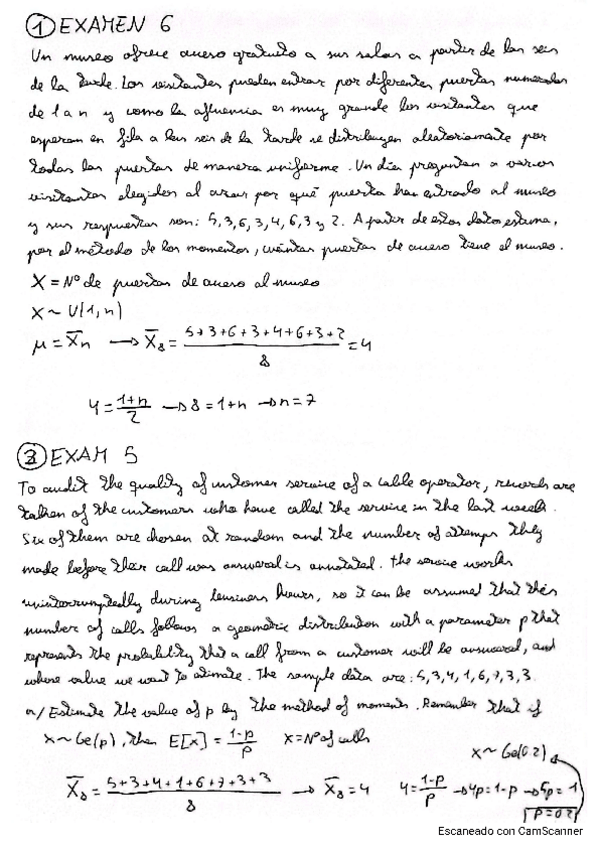 ① EXAMEN 6
Un museo ofrece acceso gratuito a sus salas a partir de las seis
de la tarde. Los visitantes pueden entrar por diferentes puertas numeradas
de 1 a n y como la afluencia es muy grande los visitantes que
esperan en fila a las seis de la tarde se distribuyen aleatoriamente por
todas las puertas de manera uniforme. Un día preguntan a varios
visitantes elegidos al azar por qué puerta han entrado al museo
y sus respuestas son: 5,3,6,3,4,6,3 y 2. A partir de estos datos estima,
por el método de los momentos, cuántas puertas de acceso tiene el museo.
X = Nº de puertas de acceso al museo
X ~ U(1,n)
μ = X̄n → X̄8 = (5+3+6+3+4+6+3+2)/8 = 4
4 = (1+n)/2 → 8 = 1+n → n = 7
② EXAM 5
To audit the quality of customer service of a cable operator, records are
taken of the customers who have called the service in the last week.
Six of them are chosen at random and the number of attemps they
made before their call was answered is annotated. The service works
uninterrumptedly during business hours, so it can be assumed that this
number of calls follows a geometric distribution with a parameter p that
represents the probability that a call from a customer will be answered, and
whose value we want to estimate. The sample data are: 5,3,4,1,6,7,3,3.
a/ Estimate the value of p by the method of moments. Remember that if
X ~ Ge(p), then E[X] = (1-p)/p X = Nº of calls
X ~ Ge(0.2)
X̄8 = (5+3+4+1+6+7+3+3)/8 → X̄8 = 4 4 = (1-p)/p → 4p = 1-p → 5p = 1
p = 0.2
Escaneado con CamScanner